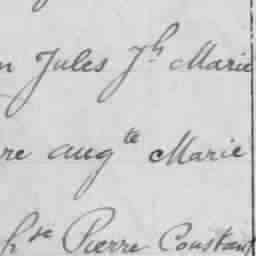 n Jules Jh Marie
re augte Marie
hse Pierre Constant